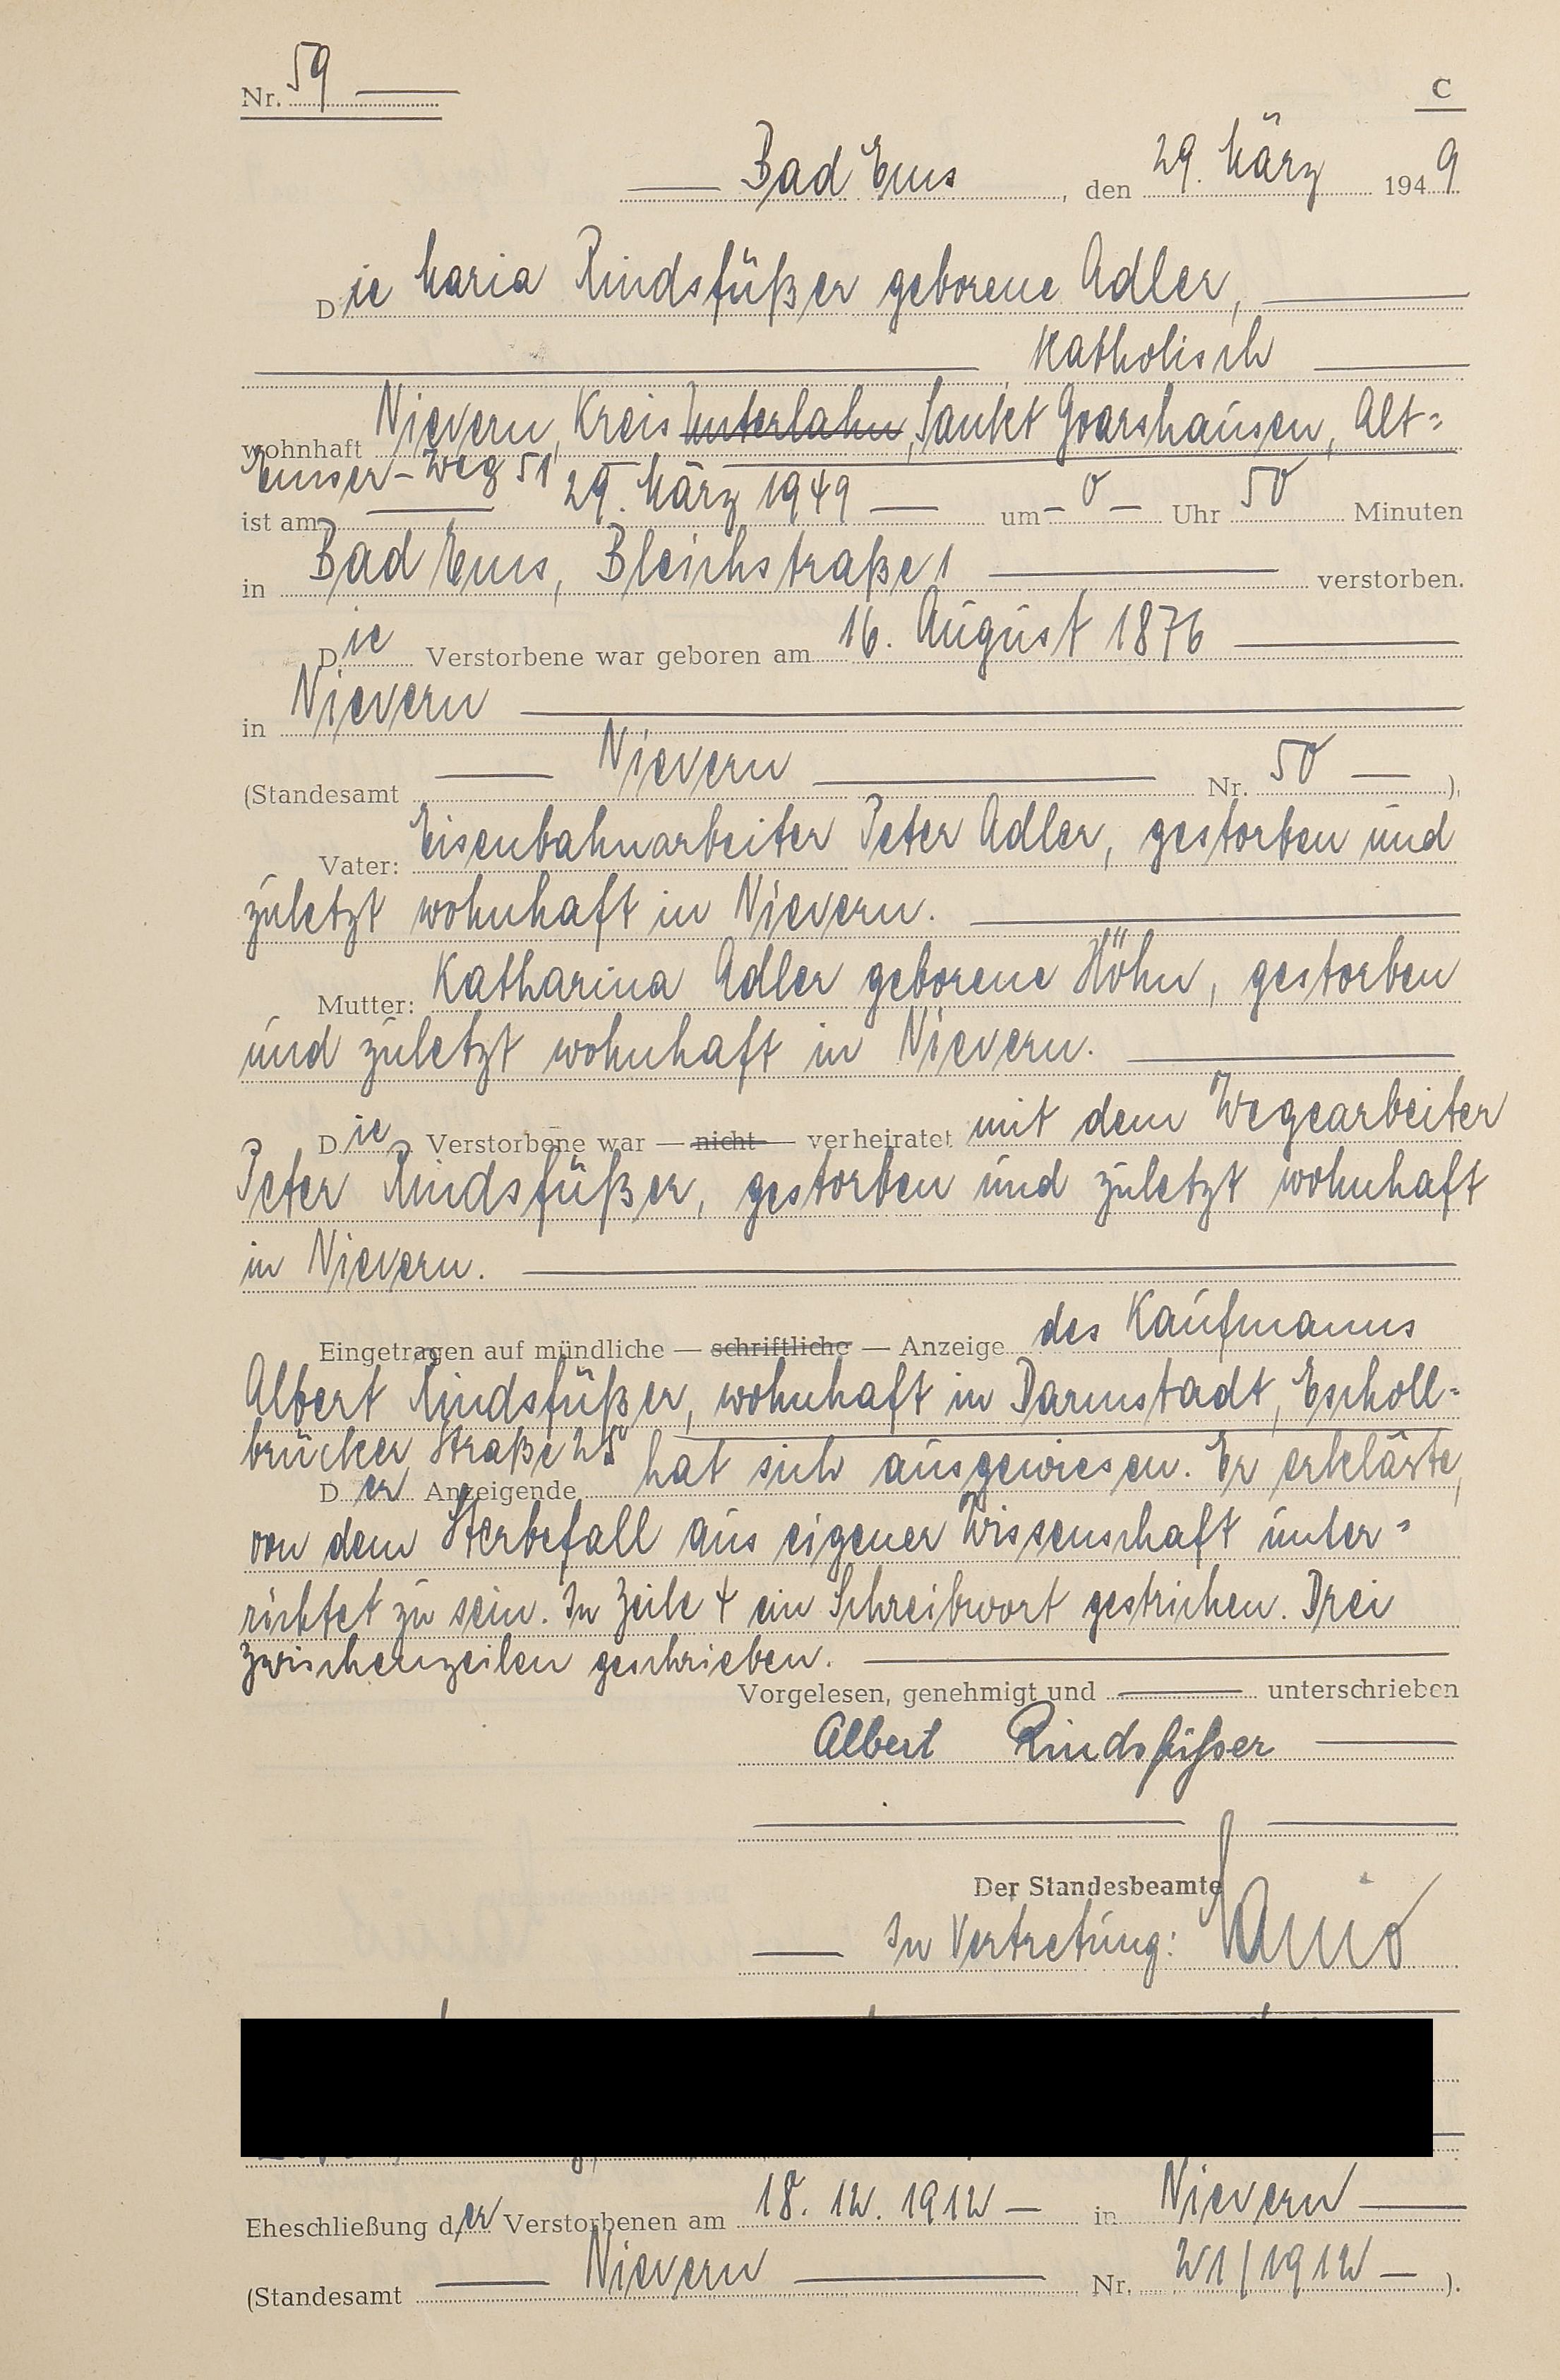 Nr. 59
C
Bad Ems, den 29. März 1949
Die Maria Rindsfüßer geborene Adler,
katholisch
wohnhaft Nievern, Kreis Unterlahn, Sankt Goarshausen, Alt=
Emser-Weg 51
ist am 29. März 1949 um - 0 - Uhr 50 Minuten
in Bad Ems, Bleichstraße 1 verstorben.
Die Verstorbene war geboren am 16. August 1876
in Nievern
(Standesamt Nievern Nr. 50 ),
Vater: Eisenbahnarbeiter Peter Adler, gestorben und
zuletzt wohnhaft in Nievern.
Mutter: Katharina Adler geborene Höhn, gestorben
und zuletzt wohnhaft in Nievern.
Die Verstorbene war — nicht — verheiratet mit dem Wegearbeiter
Peter Rindsfüßer, gestorben und zuletzt wohnhaft
in Nievern.
Eingetragen auf mündliche — schriftliche — Anzeige des Kaufmanns
Albert Rindsfüßer, wohnhaft in Darmstadt, Escholl=
brücker Straße 25
Der Anzeigende hat sich ausgewiesen. Er erklärte,
von dem Sterbefall aus eigener Wissenschaft unter=
richtet zu sein. In Zeile 4 ein Schreibwort gestrichen. Drei
Zwischenzeilen geschrieben.
Vorgelesen, genehmigt und unterschrieben
Albert Rindsfüßer
Der Standesbeamte
In Vertretung:
Eheschließung der Verstorbenen am 18. 12. 1912 in Nievern
(Standesamt Nievern Nr. 21/1912 ).